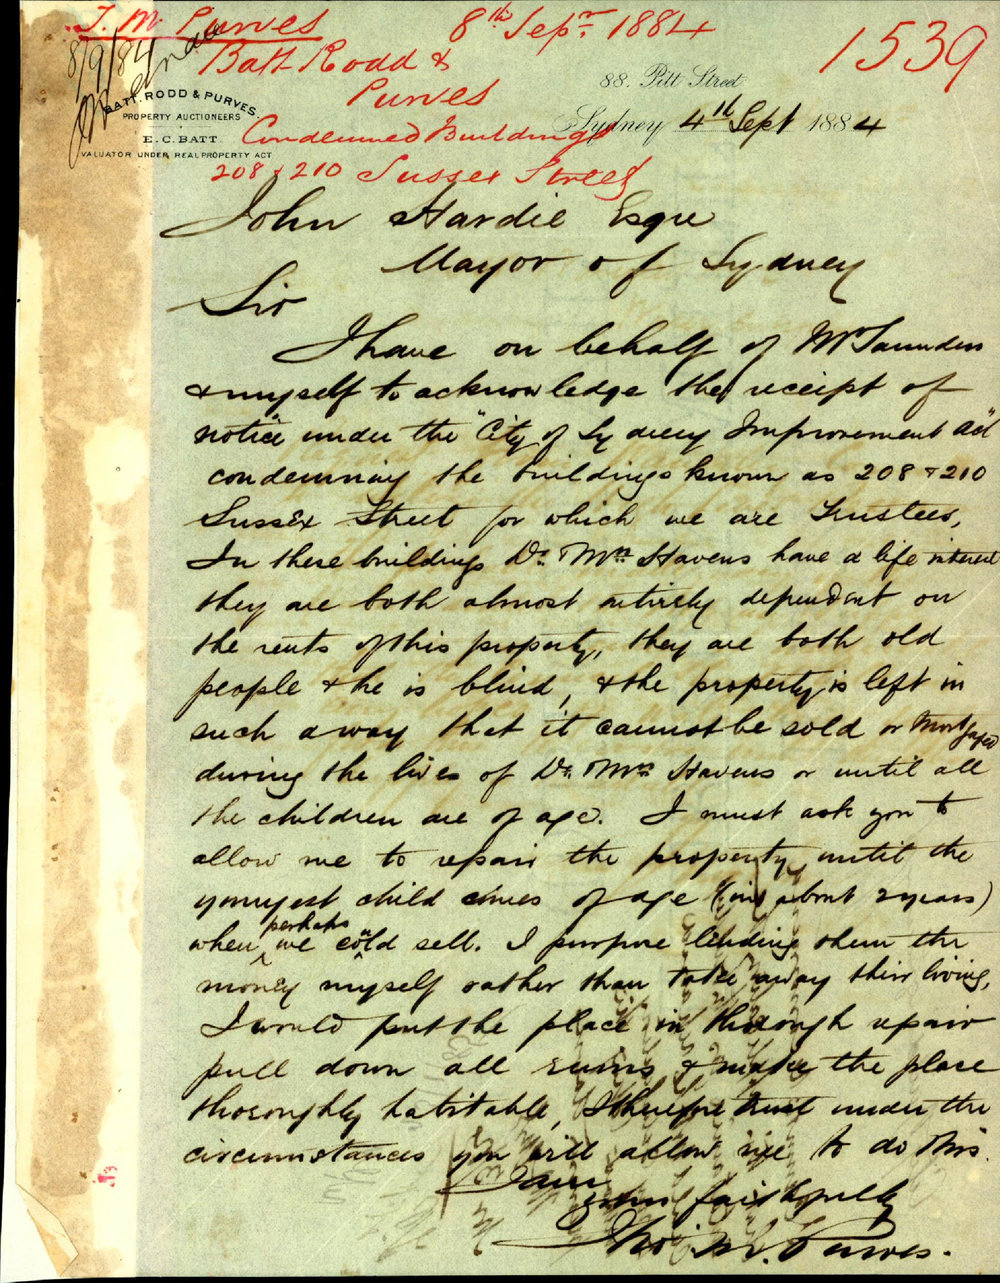 T. M. Purves
8th Sepr. 1884
1539
8/9/84
Batt Rodd &
Purves
Condemned Buildings
208 & 210 Sussex Street
BATT, RODD & PURVES.
PROPERTY AUCTIONEERS
E. C. BATT
VALUATOR UNDER REAL PROPERTY ACT
88. Pitt Street
Sydney 4th Sept 1884
John Hardie Esqre
Mayor of Sydney
Sir
I have on behalf of Mr Saunders
& myself to acknowledge the receipt of
notice under the "City of Sydney Improvement Act"
condemning the buildings known as 208 & 210
Sussex Street for which we are Trustees,
In these buildings Dr. & Mrs. Havens have a life interest
they are both almost entirely dependent on
the rents of this property, they are both old
people & he is blind, & the property is left in
such a way that it cannot be sold or Mortgaged
during the lives of Dr. & Mrs Havens or until all
the children are of age. I must ask you to
allow me to repair the property until the
youngest child comes of age (in about 2 years)
when perhaps we could sell. I purpose lending them the
money myself rather than take away their living,
I would put the place in thorough repair
pull down all ruins & make the place
thoroughly habitable, I therefore trust under the
circumstances you will allow me to do this.
I am
yours faithfully
Thos. M. Purves.